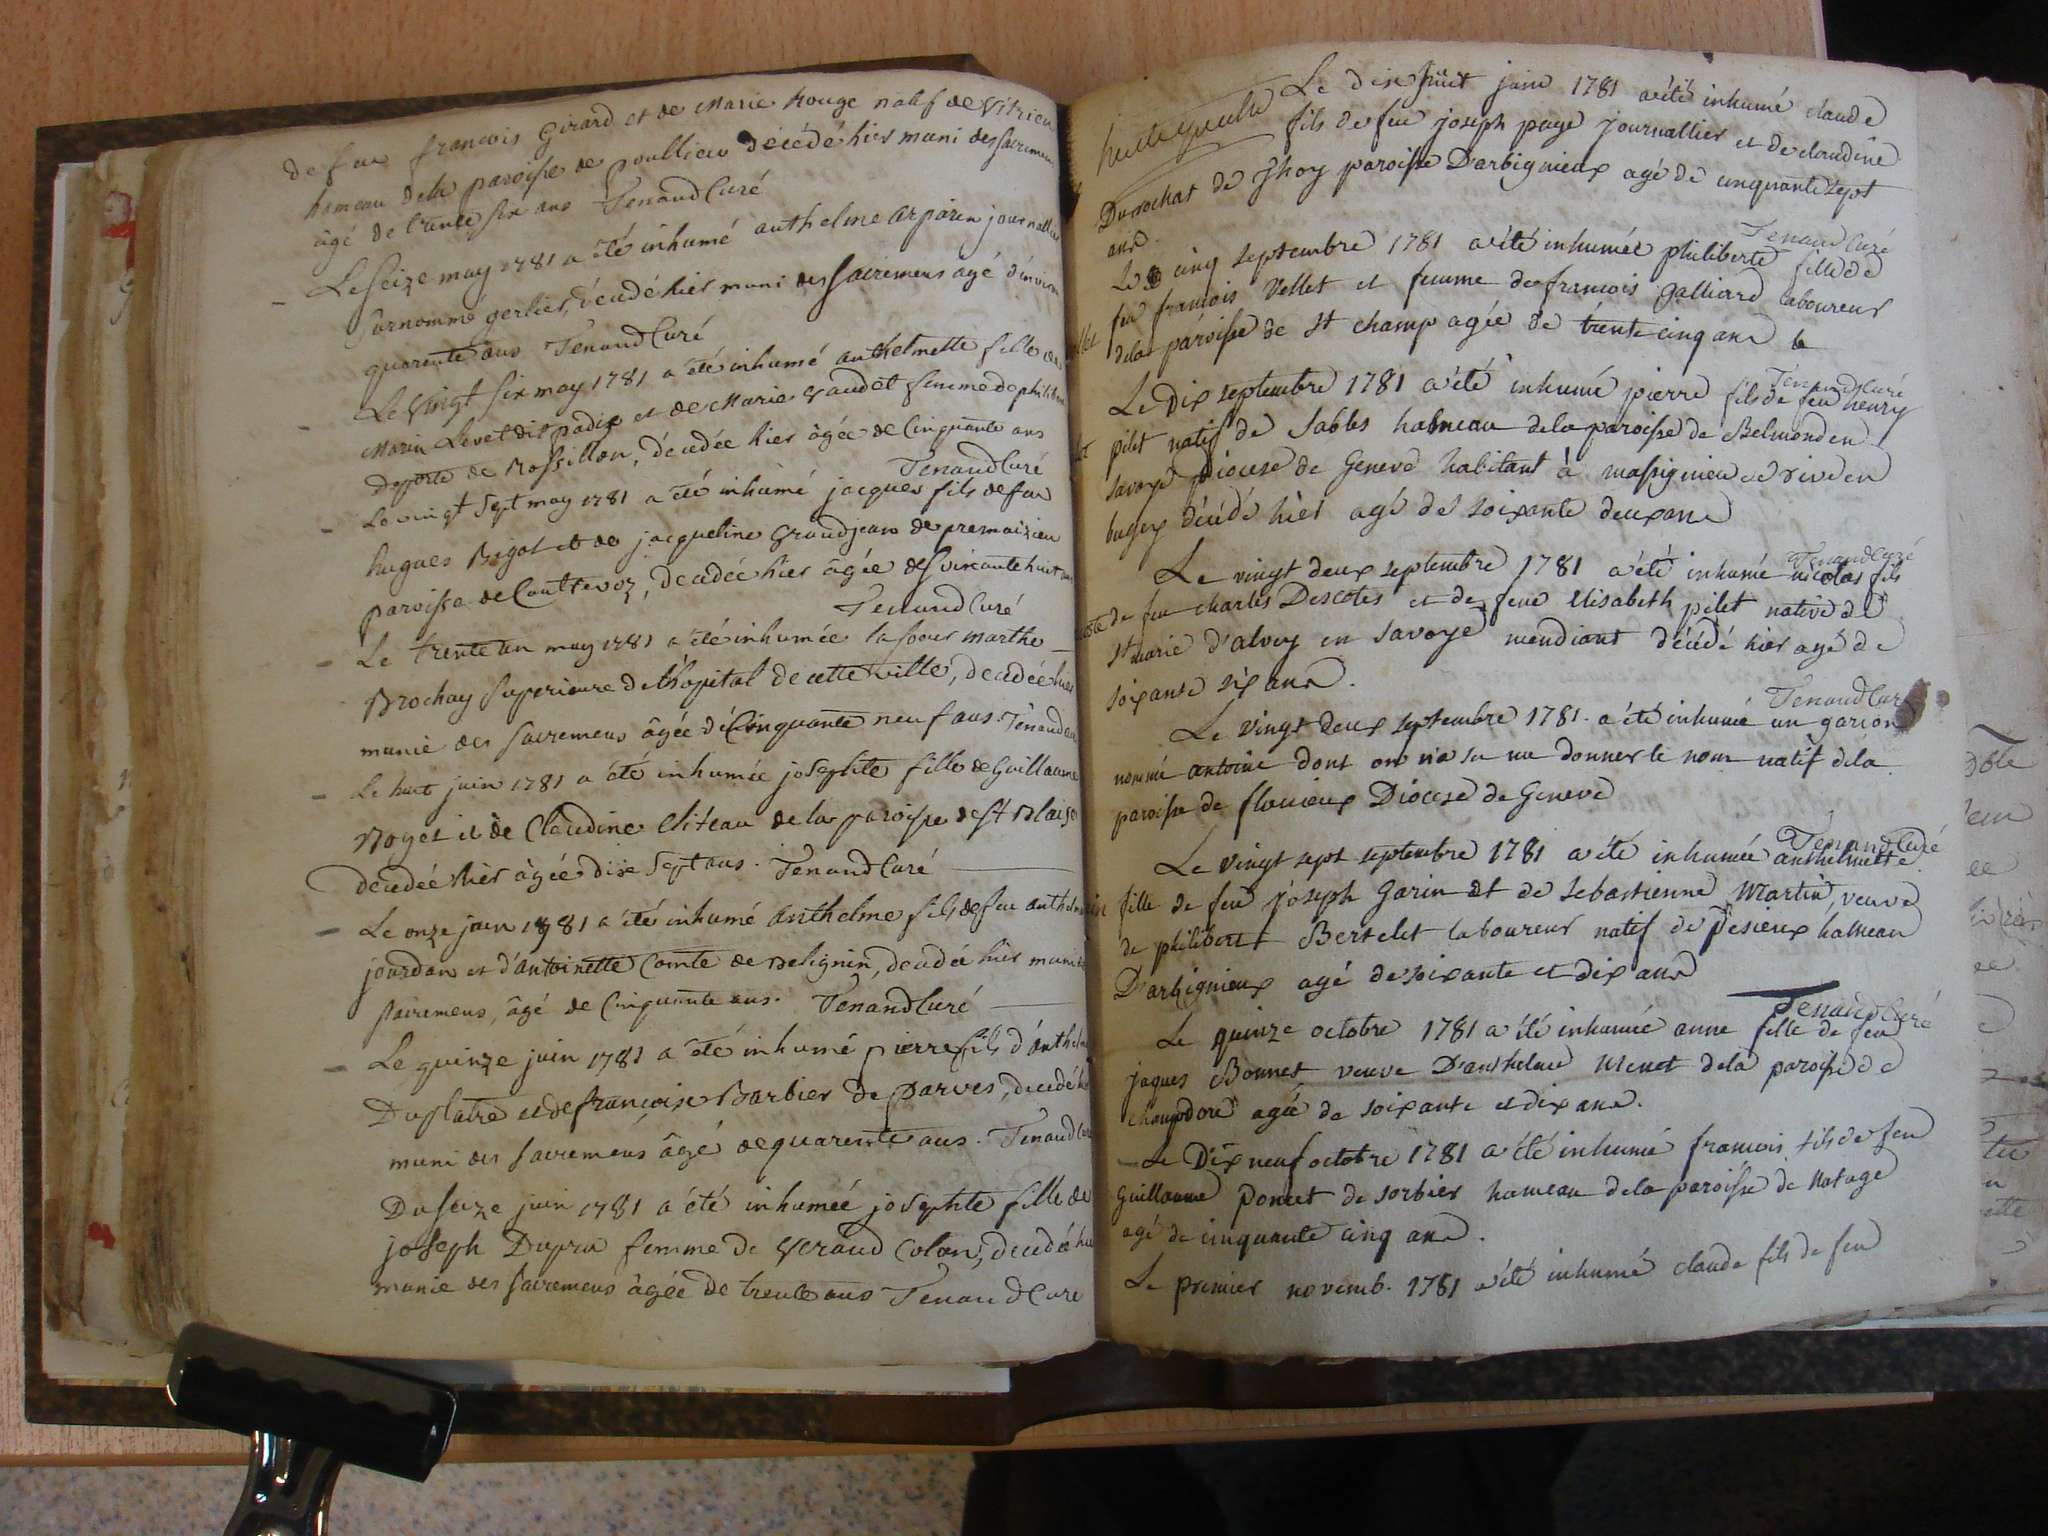 de feu francois Girard et de Marie Rouge natif de Vitrieu
hameau dela paroisse de poullieu décédé hier muni des sacremens
âgé de trente six ans Tenand Curé
Le seize may 1781 a été inhumé anthelme arparin journallier
surnommé gerlier, décédé hier muni des sacremens agé d'environ
quarente ans Tenand Curé
Le vingt six may 1781 a été inhumé anthelmette fille de
Marin Levet dit padix et de Marie vaudet femme de philibert
Deporte de Rossillon, décédée hier âgée de Cinquante ans
Tenand Curé
Le vingt Sept may 1781 a été inhumé jacques fils de feu
hugues Rigot et de jacqueline Grandjean de premaizieu
paroisse de Contrevoz, décédée hier âgée de soixante huit ans
Tenand Curé
Le trente un may 1781 a été inhumée la soeur marthe
Brochay superieure de l'hopital de cette ville, décédée hier
munie des sacremens âgée de Cinquante neuf ans. Tenand
Le huit juin 1781 a été inhumée josephte fille de Guillaume
Royet et de Claudine Cliteau de la paroisse de st Blaise
décédée hier âgée dixe Sept ans. Tenand Curé
Le onze juin 1781 a été inhumé anthelme fils de feu anthelme
jourdan et d'antoinette Comte de Belignin, décédé hier muni des
sacremens, âgé de Cinquante ans. Tenand Curé
Le quinze juin 1781 a été inhumé pierre fils d'anthelme
Duplatre et de françoise Barbier de Parves, décédé hier
muni des sacremens âgé de quarente ans. Tenand Curé
Du seize juin 1781 a été inhumée josephte fille de
joseph Dupra femme de veraud Colon, décédé hier
munie des sacremens âgée de trente ans Tenand Cure
Le dix huit juin 1781 a été inhumé claude
fils de feu joseph page journallier et de claudine
Durochat de Jhoy paroisse Darbignieux agé de cinquante sept
ans.
Tenand Curé
Le cinq septembre 1781 a été inhumée philiberte fille de
feu francois Vellet et femme de francois Galliard laboureur
dela paroisse de st champ agée de trente cinq ans
Tenand Curé
Le Dix septembre 1781 a été inhumé pierre fils de feu henry
pilet natif de Sables hameau dela paroisse de Belmond en
savoye Diocese de Geneve habitant à massignieu de rive en
bugey décédé hier agé de soixante deux ans
Tenand Curé
Le vingt deux septembre 1781 a été inhumé nicolas fils
de feu charles Descotes et de feue Elisabeth pilet native de
st marie d'alvey en savoye mendiant décédé hier agé de
soixante six ans.
Tenand Curé
Le vingt deux septembre 1781. a été inhumé un garcon
nommé antoine dont on n'a su me donner le nom natif dela
paroisse de flaxieux Diocese de Geneve
Tenand Curé
Le vingt sept septembre 1781 a été inhumée anthelmette
fille de feu joseph Garin et de sebastienne Martin, veuve
de philibert Bertelet laboureur natif de Pesieux hameau
D'arbignieux agé de soixante et dix ans
Tenand Curé
Le quinze octobre 1781 a été inhumée anne fille de feu
jaques Bonnet veuve D'anthelme Menet dela paroisse de
champdore agée de soixante et dix ans.
Le Dix neuf octobre 1781 a été inhumé francois fils de feu
Guillaume Poncet de sorbier hameau dela paroisse de Natage
agé de cinquante cinq ans.
Le premier novemb. 1781 a été inhumé claude fils de feu